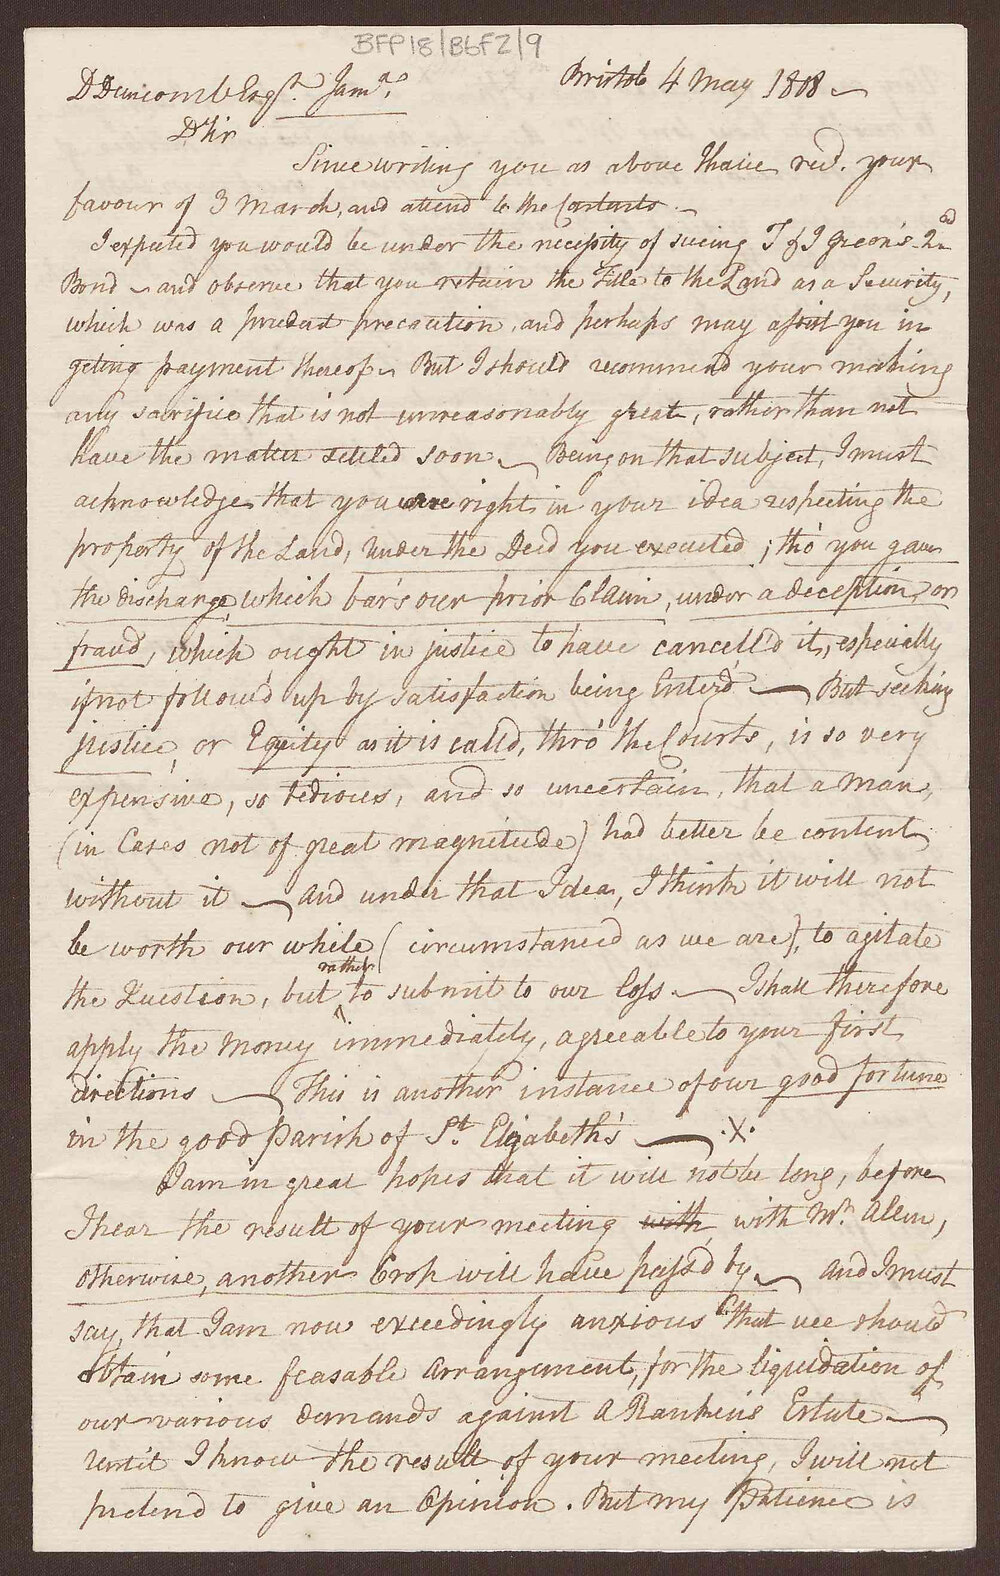 BFP18/B6F2/9
D Duncomb Esqr. Jama.
Bristol 4 May 1808
Dr Sir
Since writing you as above I have recd. your
favour of 3 March, and attend to the Contents.
I expected you would be under the necessity of sueing T & J Green's 2nd
Bond and observe that you retain the Title to the Land as a Security,
which was a prudent precaution, and perhaps may assist you in
geting payment thereof. But I should recommend your making
any sacrifice that is not unreasonably great, rather than not
have the matter settled soon. Being on that subject, I must
acknowledge, that you were right in your idea respecting the
property of the Land, under the Deed you executed; tho' you gave
the discharge, which bar's our prior Claim, under a deception, or
fraud, which ought in justice to have cancell'd it, especially
if not follow'd up by satisfaction being Enter'd. But seeking
justice, or Equity as it is call'd, thro' the Courts, is so very
expensive, so tedious, and so uncertain, that a man,
(in Cases not of great magnitude) had better be content
without it and under that Idea, I think it will not
be worth our while (circumstanced as we are), to agitate
the Question, but rather to submit to our loss. I shall therefore
apply the Money immediately, agreeable to your first
directions This is another instance of our good fortune
in the good Parish of St. Elizabeth's .X.
I am in great hopes that it will not be long, before
I hear the result of your meeting with with Mr. Alem,
otherwise, another Crop will have pass'd by. and I must
say, that I am now exceedingly anxious that we should
obtain some feasable arrangement, for the liquidation of
our various demands against A Rankin's Estate.
Until I know the result of your meeting, I will not
pretend to give an Opinion. But my Patience is